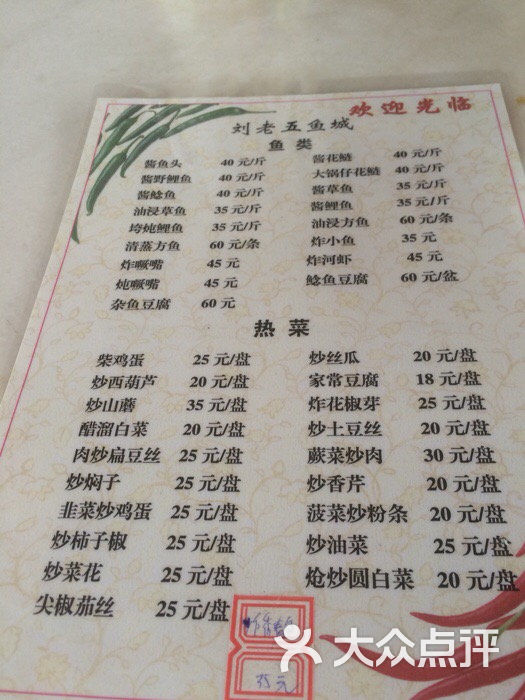 欢迎光临
刘老五鱼城
鱼类
酱鱼头 40元/斤 酱花鲢 40元/斤
酱野鲤鱼 40元/斤 大锅仔花鲢 40元/斤
酱鲶鱼 40元/斤 酱草鱼 35元/斤
油浸草鱼 35元/斤 酱鲤鱼 35元/斤
垮炖鲤鱼 35元/斤 油浸方鱼 60元/条
清蒸方鱼 60元/条 炸小鱼 35元
炸噘嘴 45元 炸河虾 45元
炖噘嘴 45元 鲶鱼豆腐 60元/盆
杂鱼豆腐 60元
热菜
柴鸡蛋 25元/盘 炒丝瓜 20元/盘
炒西葫芦 20元/盘 家常豆腐 18元/盘
炒山蘑 35元/盘 炸花椒芽 25元/盘
醋溜白菜 20元/盘 炒土豆丝 20元/盘
肉炒扁豆丝 25元/盘 蕨菜炒肉 30元/盘
炒焖子 25元/盘 炒香芹 20元/盘
韭菜炒鸡蛋 25元/盘 菠菜炒粉条 20元/盘
炒柿子椒 25元/盘 炒油菜 25元/盘
炒菜花 25元/盘 炝炒圆白菜 20元/盘
尖椒茄丝 25元/盘
35元
大众点评